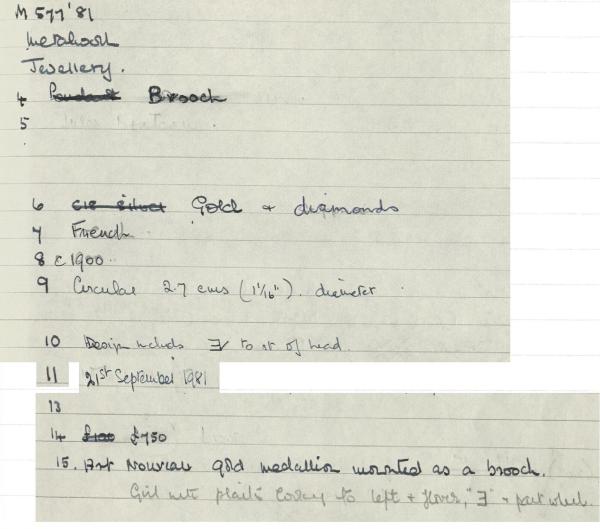 M 577'81
Metalwork
Jewellery.
4 Pendant Brooch
5
6 Gold + diamonds
7 French
8 c 1900
9 Circular 2.7 cms (1 1/16"). diameter
10 Design includes ∃/ to rt of head.
11 21st September 1981
13
14 £100 £750
15. Art Nouveau gold medallion mounted as a brooch.
Girl with plaits looking to left + flower, "∃" + part wheel.